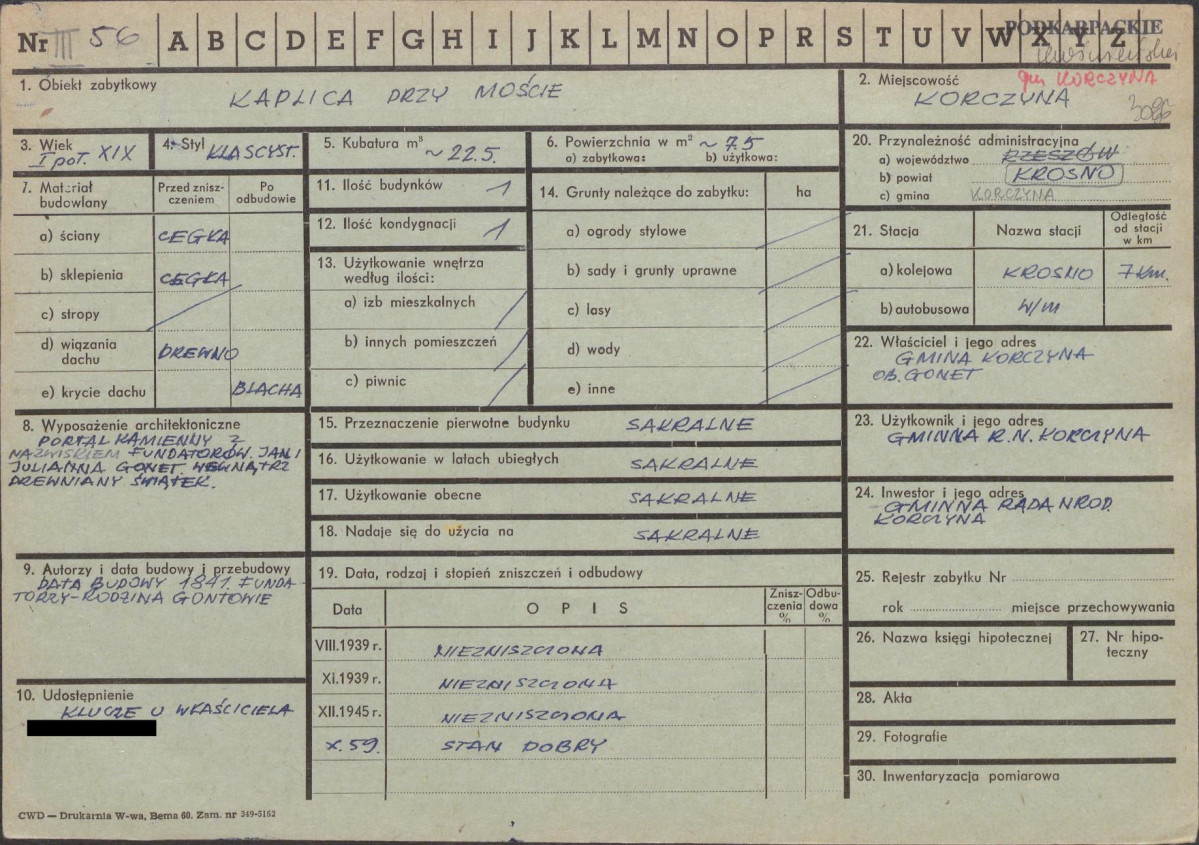 Nr III 56
A B C D E F G H I J K L M N O P R S T U V W X Y Z
PODKARPACKIE
gm KORCZYNA
3086
1. Obiekt zabytkowy
KAPLICA PRZY MOŚCIE
2. Miejscowość
KORCZYNA
3. Wiek
I poł. XIX
4. Styl KLASCYST.
5. Kubatura m³
~ 22.5.
6. Powierzchnia w m² ~ 7.5
a) zabytkowa: b) użytkowa:
7. Materiał budowlany
Przed znisz-
czeniem
Po
odbudowie
a) ściany CEGŁA
b) sklepienia CEGŁA
c) stropy
d) wiązania
dachu DREWNO
e) krycie dachu BLACHA
8. Wyposażenie architektoniczne
PORTAL KAMIENNY Z
NAZWISKIEM FUNDATORÓW. JAN I
JULIANNA GONET. WEWNĄTRZ
DREWNIANY ŚWIĄTEK.
9. Autorzy i data budowy i przebudowy
DATA BUDOWY 1841. FUNDA-
TORZY-RODZINA GONTOWIE
10. Udostępnienie
KLUCZE U WŁAŚCICIELA
11. Ilość budynków 1
12. Ilość kondygnacji 1
13. Użytkowanie wnętrza
według ilości:
a) izb mieszkalnych
b) innych pomieszczeń
c) piwnic
14. Grunty należące do zabytku: ha
a) ogrody stylowe
b) sady i grunty uprawne
c) lasy
d) wody
e) inne
15. Przeznaczenie pierwotne budynku SAKRALNE
16. Użytkowanie w latach ubiegłych SAKRALNE
17. Użytkowanie obecne SAKRALNE
18. Nadaje się do użycia na SAKRALNE
19. Data, rodzaj i stopień zniszczeń i odbudowy
Data
OPIS
Znisz-
czenia
%
Odbu-
dowa
%
VIII.1939 r. NIEZNISZCZONA
XI.1939 r. NIEZNISZCZONA
XII.1945 r. NIEZNISZCZONA
X.59. STAN DOBRY
20. Przynależność administracyjna
a) województwo RZESZÓW
b) powiat KROSNO
c) gmina KORCZYNA
21. Stacja
Nazwa stacji
Odległość
od stacji
w km
a) kolejowa KROSNO 7 Km.
b) autobusowa W/M
22. Właściciel i jego adres
GMINA KORCZYNA
OB. GONET
23. Użytkownik i jego adres
GMINNA R.N. KORCZYNA
24. Inwestor i jego adres
GMINNA RADA NROD.
KORCZYNA
25. Rejestr zabytku Nr
rok miejsce przechowywania
26. Nazwa księgi hipotecznej
27. Nr hipo-
teczny
28. Akta
29. Fotografie
30. Inwentaryzacja pomiarowa
CWD — Drukarnia W-wa, Bema 60. Zam. nr 349-5162